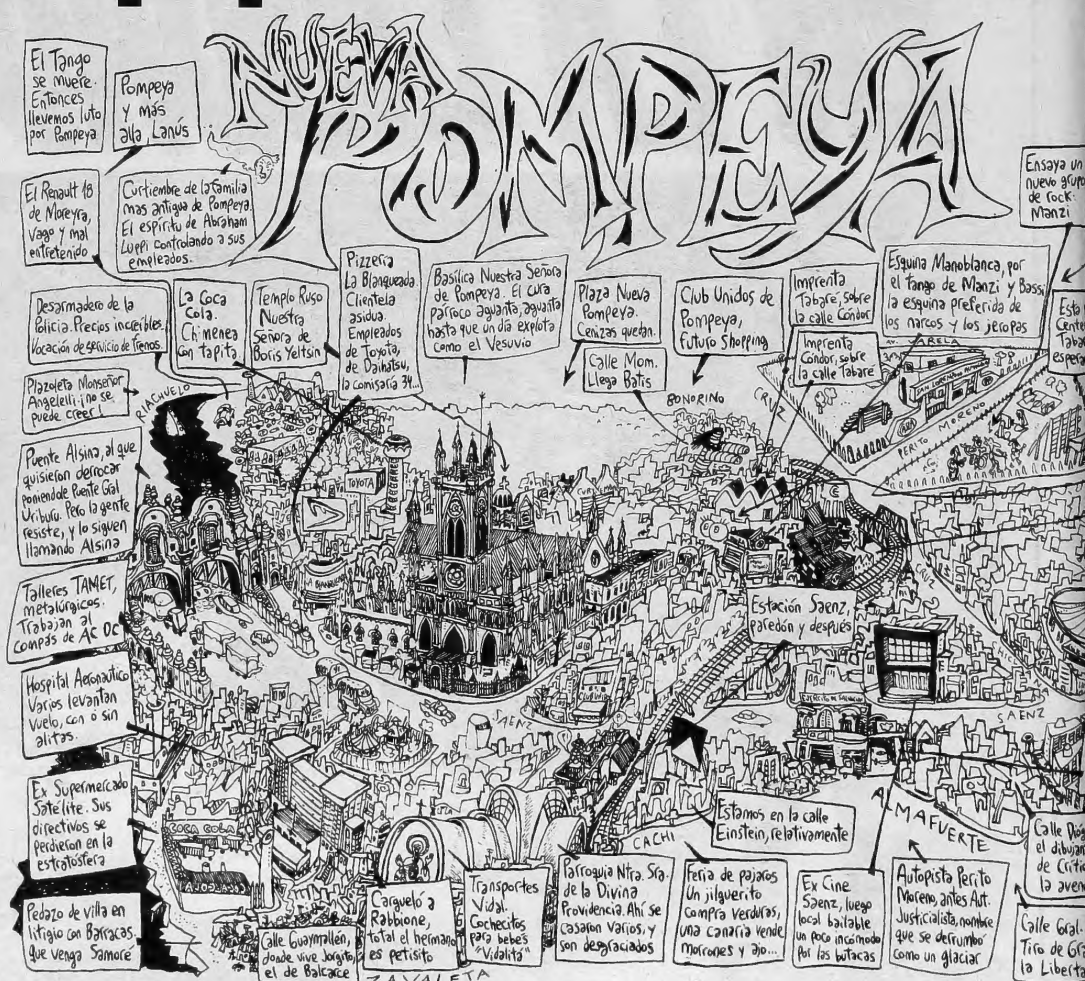 NUEVA
POMPEYA
El Tango
se muere.
Entonces
llevemos luto
por Pompeya
Pompeya
y más
alla Lanús
El Renault 18
de Moreyra,
vago y mal
entretenido
Curtiembre de la familia
mas antigua de Pompeya.
El espiritu de Abraham
Luppi controlando a sus
empleados.
Ensaya un
nuevo grupo
de rock:
Manzi
Desarmadero de la
Policia. Precios increibles.
Vocación de servicio de frenos.
La Coca
Cola.
Chimenea
con tapita
Templo Ruso
Nuestra
Señora de
Boris Yeltsin
Pizzeria
La Blanqueada
Clientela
asidua.
Empleados
de Toyota,
de Daihatsu,
la comisaría 34...
Basílica Nuestra Señora
de Pompeya. El cura
párroco aguanta, aguanta
hasta que un día explota
como el Vesuvio
Plaza Nueva
Pompeya.
Cenizas quedan.
Calle Mom.
Llega Batis
Club Unidos de
Pompeya,
futuro Shopping
Imprenta
Tabaré, sobre
la calle Cóndor
Imprenta
Cóndor, sobre
la calle Tabaré
Esquina Manoblanca, por
el tango de Manzi y Bassi
la esquina preferida de
los narcos y los jeropas
Esta
Tabar
esper
Plazoleta Monseñor
Angelelli ¡no se
puede creer!
RIACHUELO
BONORINO
CRUZ
VARELA
SAN LORENZO
PERITO MORENO
Puente Alsina, al que
quisieron derrocar
poniendole Puente Gral
Uriburu. Pero la gente
resiste, y lo siguen
llamando Alsina
TOYOTA
CRUZ
Talleres TAMET,
metalúrgicos.
Trabajan al
compás de AC DC
Estación Saenz,
paredón y después
Hospital Aeronáutico
Varios levantan
vuelo, con ó sin
alitas.
SAENZ
SAENZ
Ex Supermercado
Satélite. Sus
directivos se
perdieron en la
estratósfera
COCA COLA
CACHI
Estamos en la calle
Einstein, relativamente
ALMAFUERTE
Pedazo de villa en
litigio con Barracas.
que venga Samoré
Calle Guaymallén,
donde vive Jorgito,
el de Balcarce
Carguelo a
Rabbione,
total el hermano
es petisito
Transportes
Vidal.
Cochecitos
para bebés
"Vidalitá"
Parroquia Ntra. Sra.
de la Divina
Providencia. Ahí se
casaron varios, y
son desgraciados
Feria de pajaros
Un jilguerito
compra verduras,
una canaria vende
morrones y ajo...
Ex Cine
Saenz, luego
local bailable
un poco incómodo
por las butacas
Autopista Perito
Moreno, antes Aut.
Justicialista, nombre
que se derrumbó
como un glaciar
Calle
el dibujan
de Crític
la aven
Calle Gral.
Tiro de Gr
la Liberta
ZAVALETA